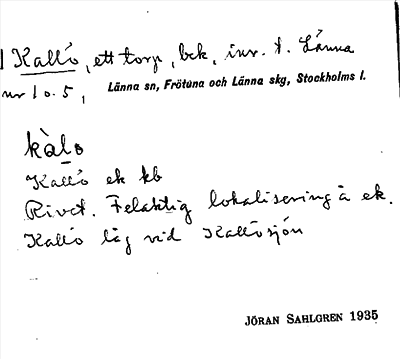 Kallö, ett torp, bck, inr. t. Länna
nr 1 o. 5, Länna sn, Frötuna och Länna skg, Stockholms l.
kàlo
Kallö ek kb
Rivet. Felaktig lokalisering å ek.
Kallö låg vid Kallösjön
JÖRAN SAHLGREN 1935